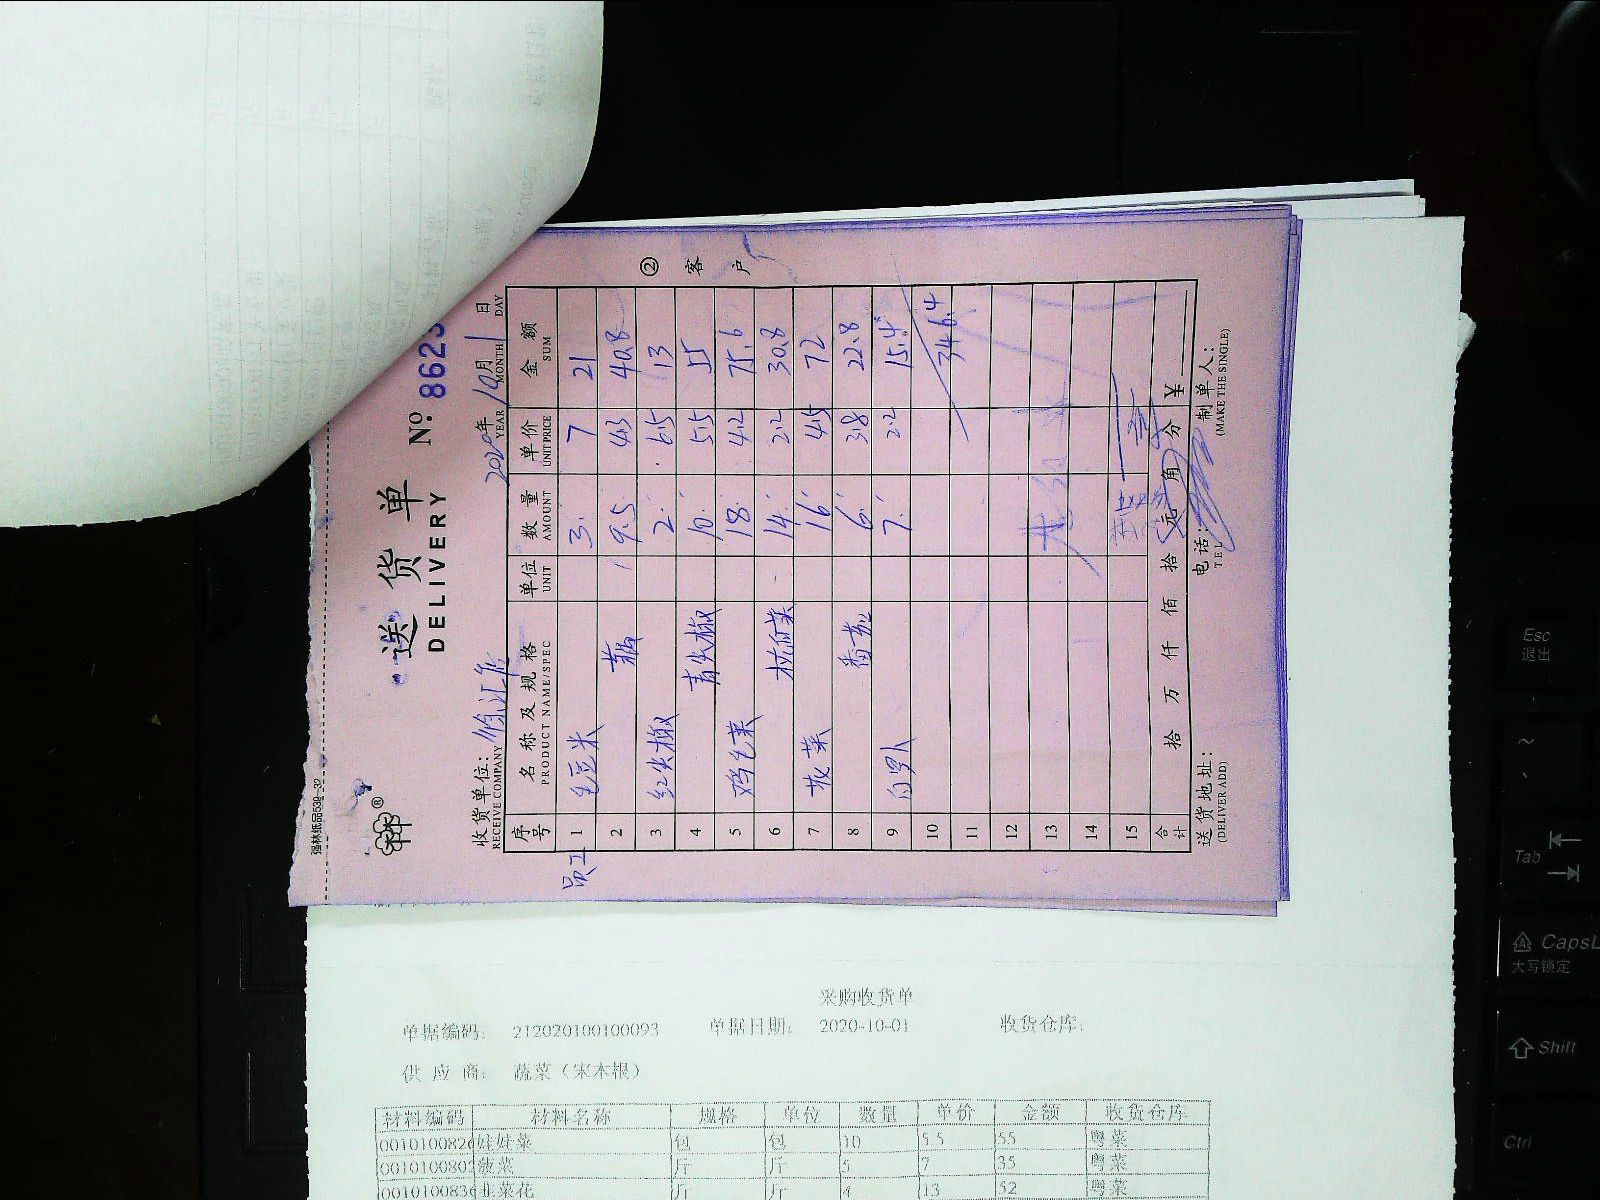 强林纸品539-32
送货单
DELIVERY
№ 8623
收货单位:
RECEIVE COMPANY
2020年 10月 1日
YEAR MONTH DAY
序号 名称及规格 单位 数量 单价 金额
PRODUCT NAME/SPEC UNIT AMOUNT UNIT PRICE SUM
员工
1 毛豆米 3 7 21
2 藕 9.5 4.3 40.8
3 红尖椒 2 6.5 13
4 青尖椒 10 5.5 55
5 鸡毛菜 18 4.2 75.6
6 杭白菜 14 2.2 30.8
7 菠菜 16 4.5 72
8 番茄 6 3.8 22.8
9 白萝卜 7 2.2 15.4
10 346.4
11
12
13
14
15
合计 拾 万 仟 佰 拾 元 角 分 ¥
送货地址: 电话: 制单人:
(DELIVER ADD) TEL (MAKE THE SINGLE)
② 客户
采购收货单
单据编码: 212020100100093 单据日期: 2020-10-01 收货仓库:
供应商: 蔬菜（宋本根）
材料编码 材料名称 规格 单位 数量 单价 金额 收货仓库
0010100826 娃娃菜 包 包 10 5.5 55 粤菜
001010080 菠菜 斤 斤 5 7 35 粤菜
001010083 韭菜花 斤 斤 4 13 52 粤菜
Esc
退出
~
Tab
CapsL
大写锁定
Shift
Ctrl